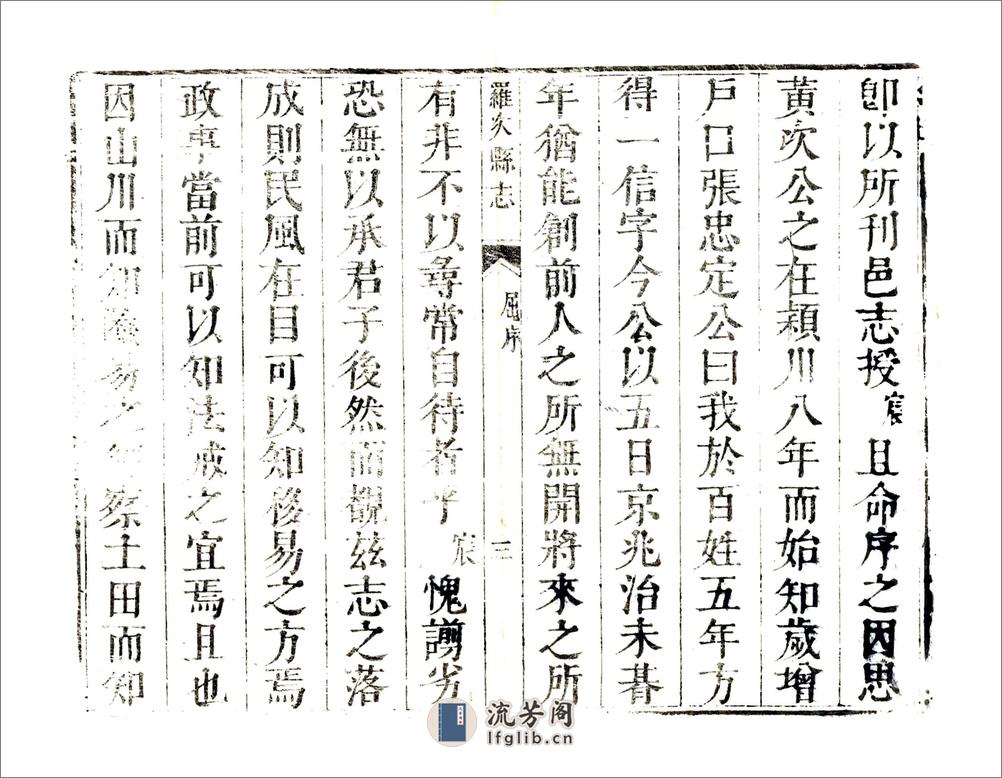 即以所刊邑志授宸且命序之因思
黃次公之在潁川八年而始知歲增
戶口張忠定公曰我於百姓五年方
得一信字今公以五日京兆治未朞
年猶能創前人之所無開將來之所
羅次縣志 屈序 三
有非不以尋常自待者乎宸愧謭劣
恐無以承君子後然而覩茲志之落
成則民風在目可以知移易之方焉
政事當前可以知法戒之宜焉且也
因山川而知險易之 察土田而知
流芳阁
lfglib.cn